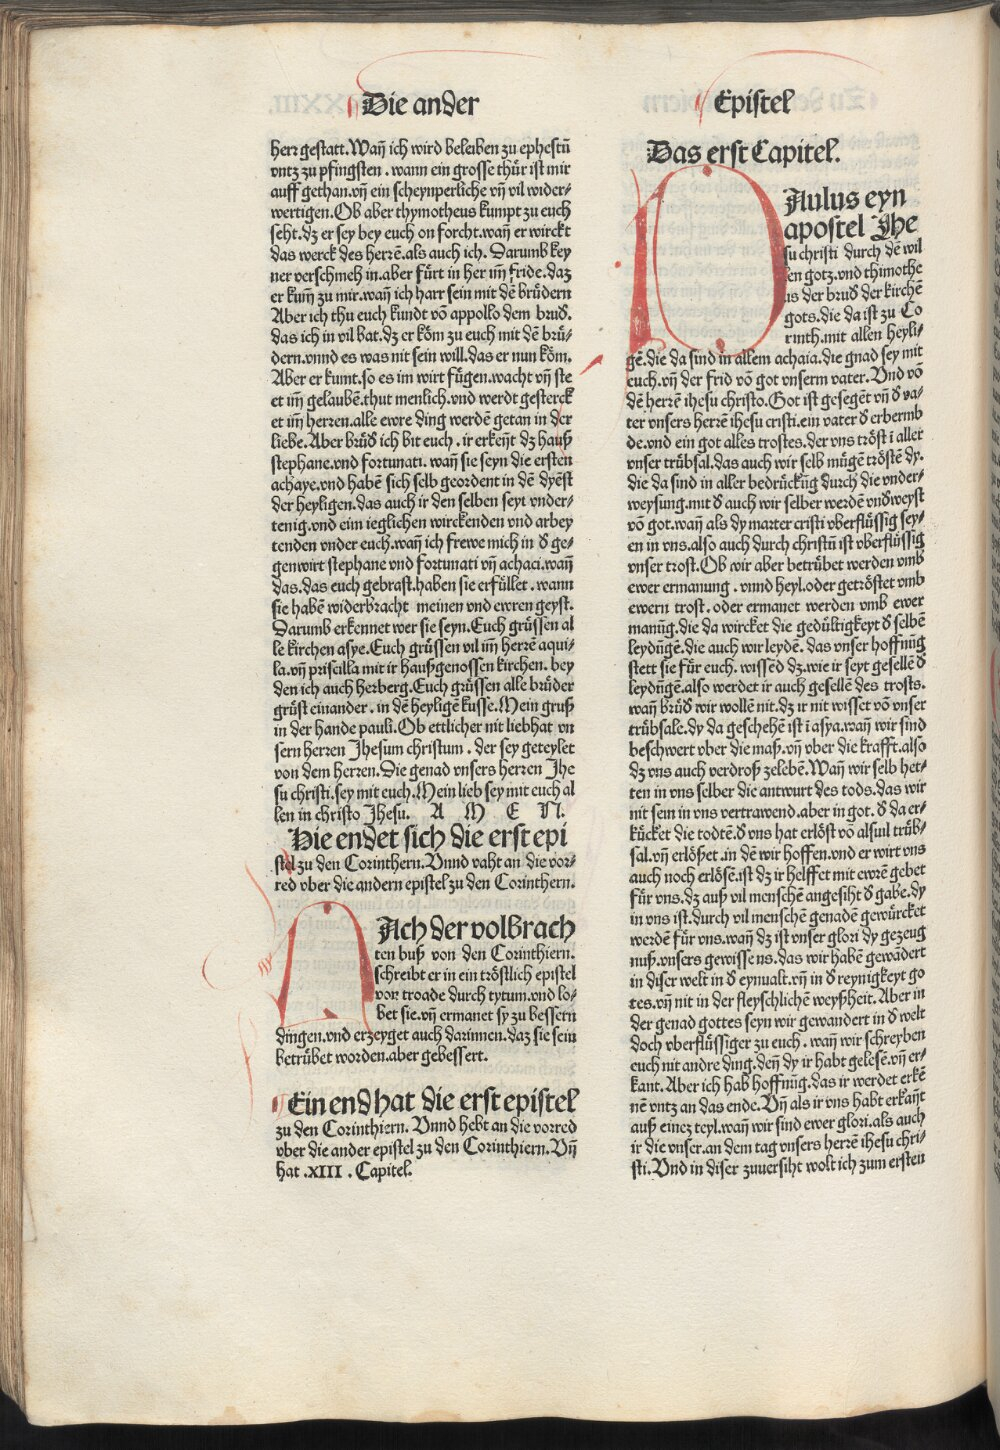 Die ander
Epistel
herr gestatt. Wañ ich wird beleiben zu ephesū
vntz zu pfingsten . wann ein grosse thür ist mir
auff gethan. vñ ein scheynperliche vñ vil wider-
wertigen. Ob aber thymotheus kumpt zu euch
seht. dz er sey bey euch on forcht. wañ er wirckt
das werck des herrē. als auch ich. Darumb key
ner verschmeh in. aber fürt in her im̄ fride. daz
er kum̄ zu mir. wañ ich harr sein mit dē brüdern
Aber ich thu euch kundt vō appollo dem brud.
das ich in vil bat. dz er köm zu euch mit dē brü-
dern. vnnd es was nit sein will. das er nun köm.
Aber er kumt. so es im wirt fügen. wacht vñ ste
et im̄ gelaubē. thut menlich. vnd werdt gesterck
et im̄ herren. alle ewre ding werdē getan in der
liebe. Aber brüd ich bit euch . ir erkeñt dz hauß
stephane. vnd fortunati. wañ sie seyn die ersten
achaye. vnd habē sich selb geordent in dē dyēst
der heyligen. das auch ir den selben seyt vnder-
tenig. vnd eim ieglichen wirckenden vnd arbey
tenden vnder euch. wañ ich frewe mich in d̕ ge-
genwirt stephane vnd fortunati vñ achaci. wañ
das. das euch gebrast. haben sie erfüllet . wann
sie habē widerbracht meinen vnd ewren geyst.
Darumb erkennet wer sie seyn. Euch grüssen al
le kirchen asye. Euch grüssen vil im̄ herrē aqui-
la. vñ priscilla mit ir haußgenossen kirchen. bey
den ich auch herberg. Euch grüssen alle brüder
grüst einander . in dē heyligē kusse. Mein gruß
in der hande pauli. Ob ettlicher nit liebhat vn
sern herren Jhesum christum . der sey geteylet
von dem herren. Die genad vnsers herren Jhe
su christi. sey mit euch. Mein lieb sey mit euch al
len in christo Jhesu. A M E N.
Hie endet sich die erst epi
stel zu den Corinthern. Vnnd vaht an die vor-
red vber die andern epistel zu den Corinthern.
NAch der volbrach
ten buß von den Corinthiern.
schreibt er in ein tröstlich epistel
von troade durch tytum. vnd lo-
bet sie. vñ ermanet sy zu bessern
dingen. vnd erzeyget auch darinnen. daz sie sein
betrübet worden. aber gebessert.
Ein end hat die erst epistel
zu den Corinthiern. Vnnd hebt an die vorred
vber die ander epistel zu den Corinthiern. Vñ
hat .XIII . Capitel.
Das erst Capitel.
PAulus eyn
apostel Jhe
su christi durch dē wil
len gotz. vnd thimothe
us der brud̕ der kirchē
gots. die da ist zu Co
rinth. mit allen heyli-
gē. die da sind in allem achaia. die gnad sey mit
euch. vñ der frid vō got vnserm vater. Vnd vō
dē herrē ihesu christo. Got ist gesegēt vñ d̕ va-
ter vnsers herrē ihesu cristi. ein vater d̕ erbermb
de. vnd ein got alles trostes. der vns tröst ī aller
vnser trübsal. das auch wir selb mügē tröstē dy.
die da sind in aller bedrückūg durch die vnder-
weysung. mit d̕ auch wir selber werdē vnd̕weyst
vō got. wañ als dy marter cristi vberflüssig sey-
en in vns. also auch durch christū ist vberflüssig
vnser trost. Ob wir aber betrübet werden vmb
ewer ermanung . vnnd heyl. oder getröstet vmb
ewern trost. oder ermanet werden vmb ewer
manūg. die da wircket die gedültigkeyt d̕ selbē
leydūgē. die auch wir leydē. das vnser hoffnūg
stett sie für euch. wissēd dz. wie ir seyt gesellē d̕
leydūgē. also werdet ir auch gesellē des trosts.
wañ brüd̕ wir wollē nit. dz ir nit wisset vō vnser
trübsale. dy da geschehē ist ī asya. wañ wir sind
beschwert vber die maß. vñ vber die krafft. also
dz vns auch verdroß zelebē. Wañ wir selb het-
ten in vns selber die antwurt des tods. das wir
nit sein in vns vertrawend. aber in got. d̕ da er-
kücket die todtē. d̕ vns hat erlöst vō alsuil trüb-
sal. vñ erlößet . in dē wir hoffen. vnd er wirt vns
auch noch erlösē. ist dz ir helffet mit ewrē gebet
für vns. dz auß vil menschē angesiht d̕ gabe. dy
in vns ist. durch vil menschē genadē gewürcket
werdē für vns. wañ dz ist vnser glori dy gezeug
nuß. vnsers gewissens. das wir habē gewādert
in diser welt in d̕ eynualt. vñ in d̕ reynigkeyt go
tes. vñ nit in der fleyschlichē weyßheit. Aber in
der genad gottes seyn wir gewandert in d̕ welt
doch vberflüssiger zu euch . wañ wir schreyben
euch nit andre ding. deñ dy ir habt gelesē. vñ er-
kant. Aber ich hab hoffnūg. das ir werdet erkē
nē vntz an das ende. Vñ als ir vns habt erkañt
auß einez teyl. wañ wir sind ewer glori. als auch
ir die vnser. an dem tag vnsers herrē ihesu chri-
sti. Vnd in diser zuuersiht wolt ich zum ersten